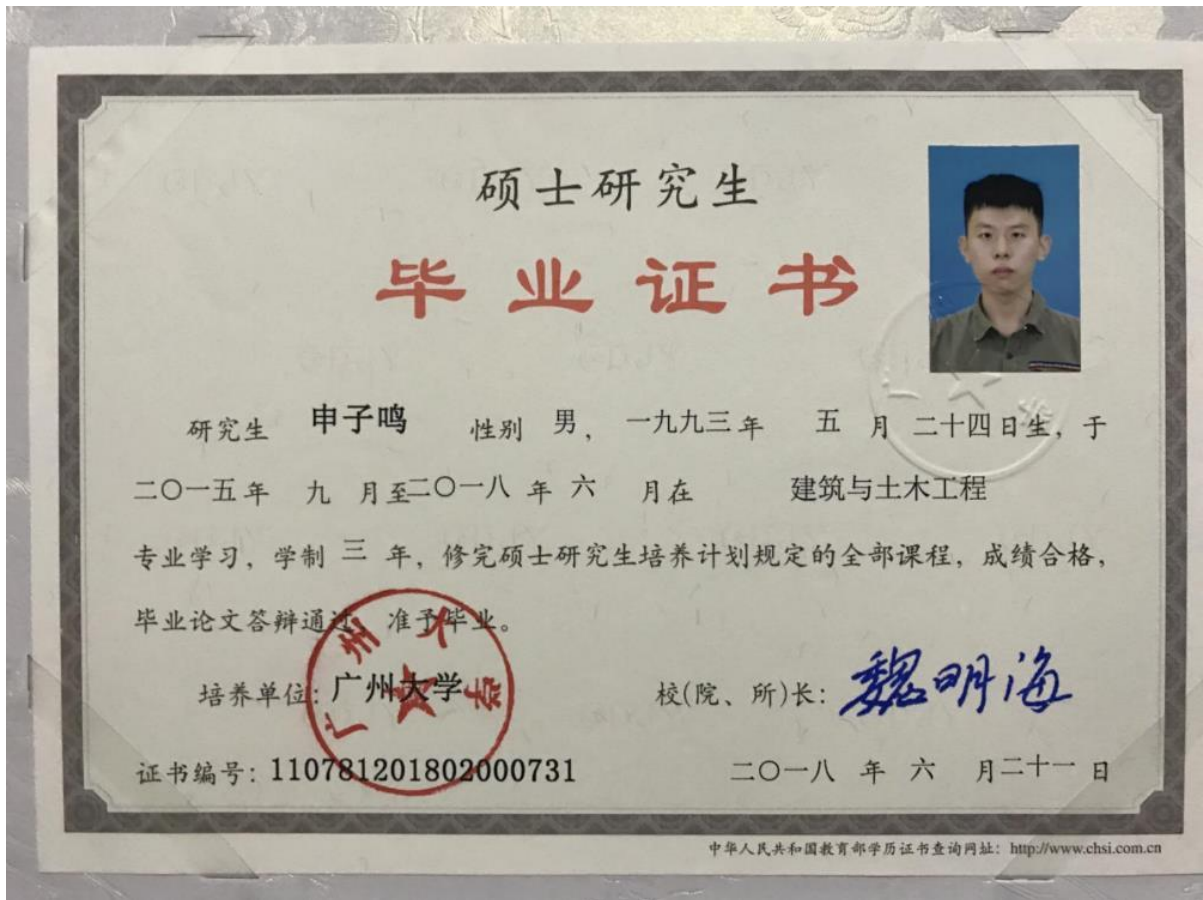 硕士研究生
毕业证书
研究生 申子鸣 性别 男, 一九九三年 五 月 二十四日生, 于
二〇一五年 九 月至二〇一八 年 六 月在 建筑与土木工程
专业学习, 学制 三 年, 修完硕士研究生培养计划规定的全部课程, 成绩合格,
毕业论文答辩通过, 准予毕业。
培养单位: 广州大学 校(院、所)长: 魏明海
广州大学
证书编号: 110781201802000731 二〇一八 年 六 月二十一 日
中华人民共和国教育部学历证书查询网址: http://www.chsi.com.cn